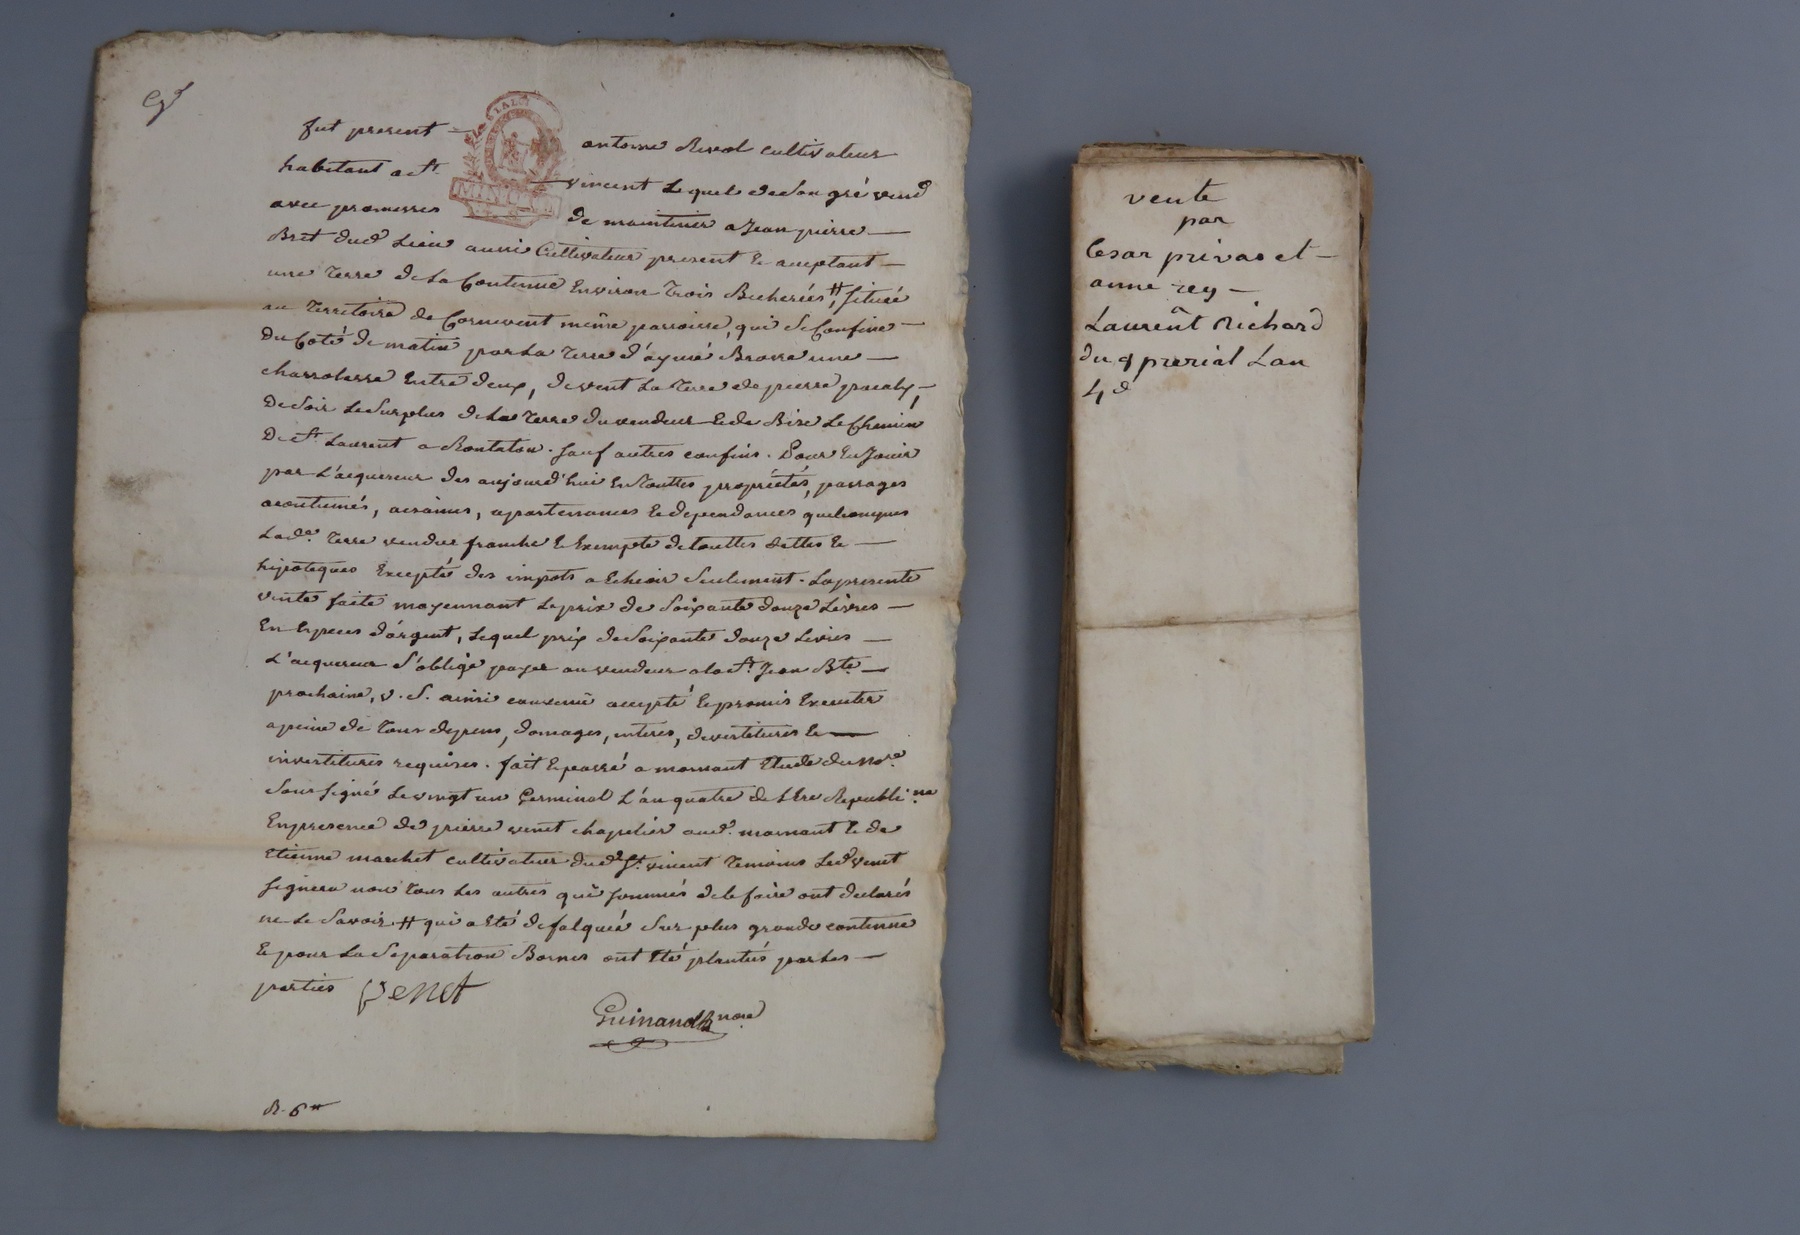 fut present – antoine Rivol cultivateur
habitant a St. – vincent Lequel de Son gré vend
avec promesses de maintenir a Jean pierre –
Bret dud. Lieu aussi Cultivateur present & acceptant –
une terre de La Contenue Environ trois Bicherées #, située
au territoire de Cornevent même parroisse, qui Se Confine –
Du Coté de matin par La terre d'aymé Brosse une –
charrolasse Entre deux, de vent La terre de pierre –
De Soir Le Surplus de La terre du vendeur & de Bize Le Chemin
De St. Laurent a Rontalon. Sauf autres confins. Pour En Jouir
par L'acquereur des aujourd'hui En touttes propriétés, passages
acoutumés, aisances, apartenances & dependances quelconques
Lade. terre vendue franche & Exempte de touttes dettes & –
hipoteques Excepté des impots a Echeoir Seulement. La presente
vente faite moyennant Le prix de Soixante douze Livres –
En Especes d'argent, Lequel prix de Soixante douze Livres –
L'acquereur S'oblige payer au vendeur a la St. Jean Bte. –
prochaine, v. S. ainsi convenu accepté & promis Executer
a peine de tous depens, domages, interes, devestitures & –
investitures requises. fait & passé a mornant Etude du Nore.
Soussigné Le vingt un Germinal L'an quatre de L'Ere Republi.ne
En presence de pierre venet chapelier aud. mornant & de
Etienne marchet cultivateur dud. St. vincent temoins Led. venet
Signera non tous Les autres qui Sommés de le faire ont declarés
ne Le Savoir. # qui a Eté defalquée Sur plus grande contenue
& pour La Separation Bornes ont Eté plantés par Les –
parties Venet
Guinand nore
R. 6 #
vente
par
Cesar privas et –
anne rey –
Laurent Richard
du 9 prerial Lan
4e